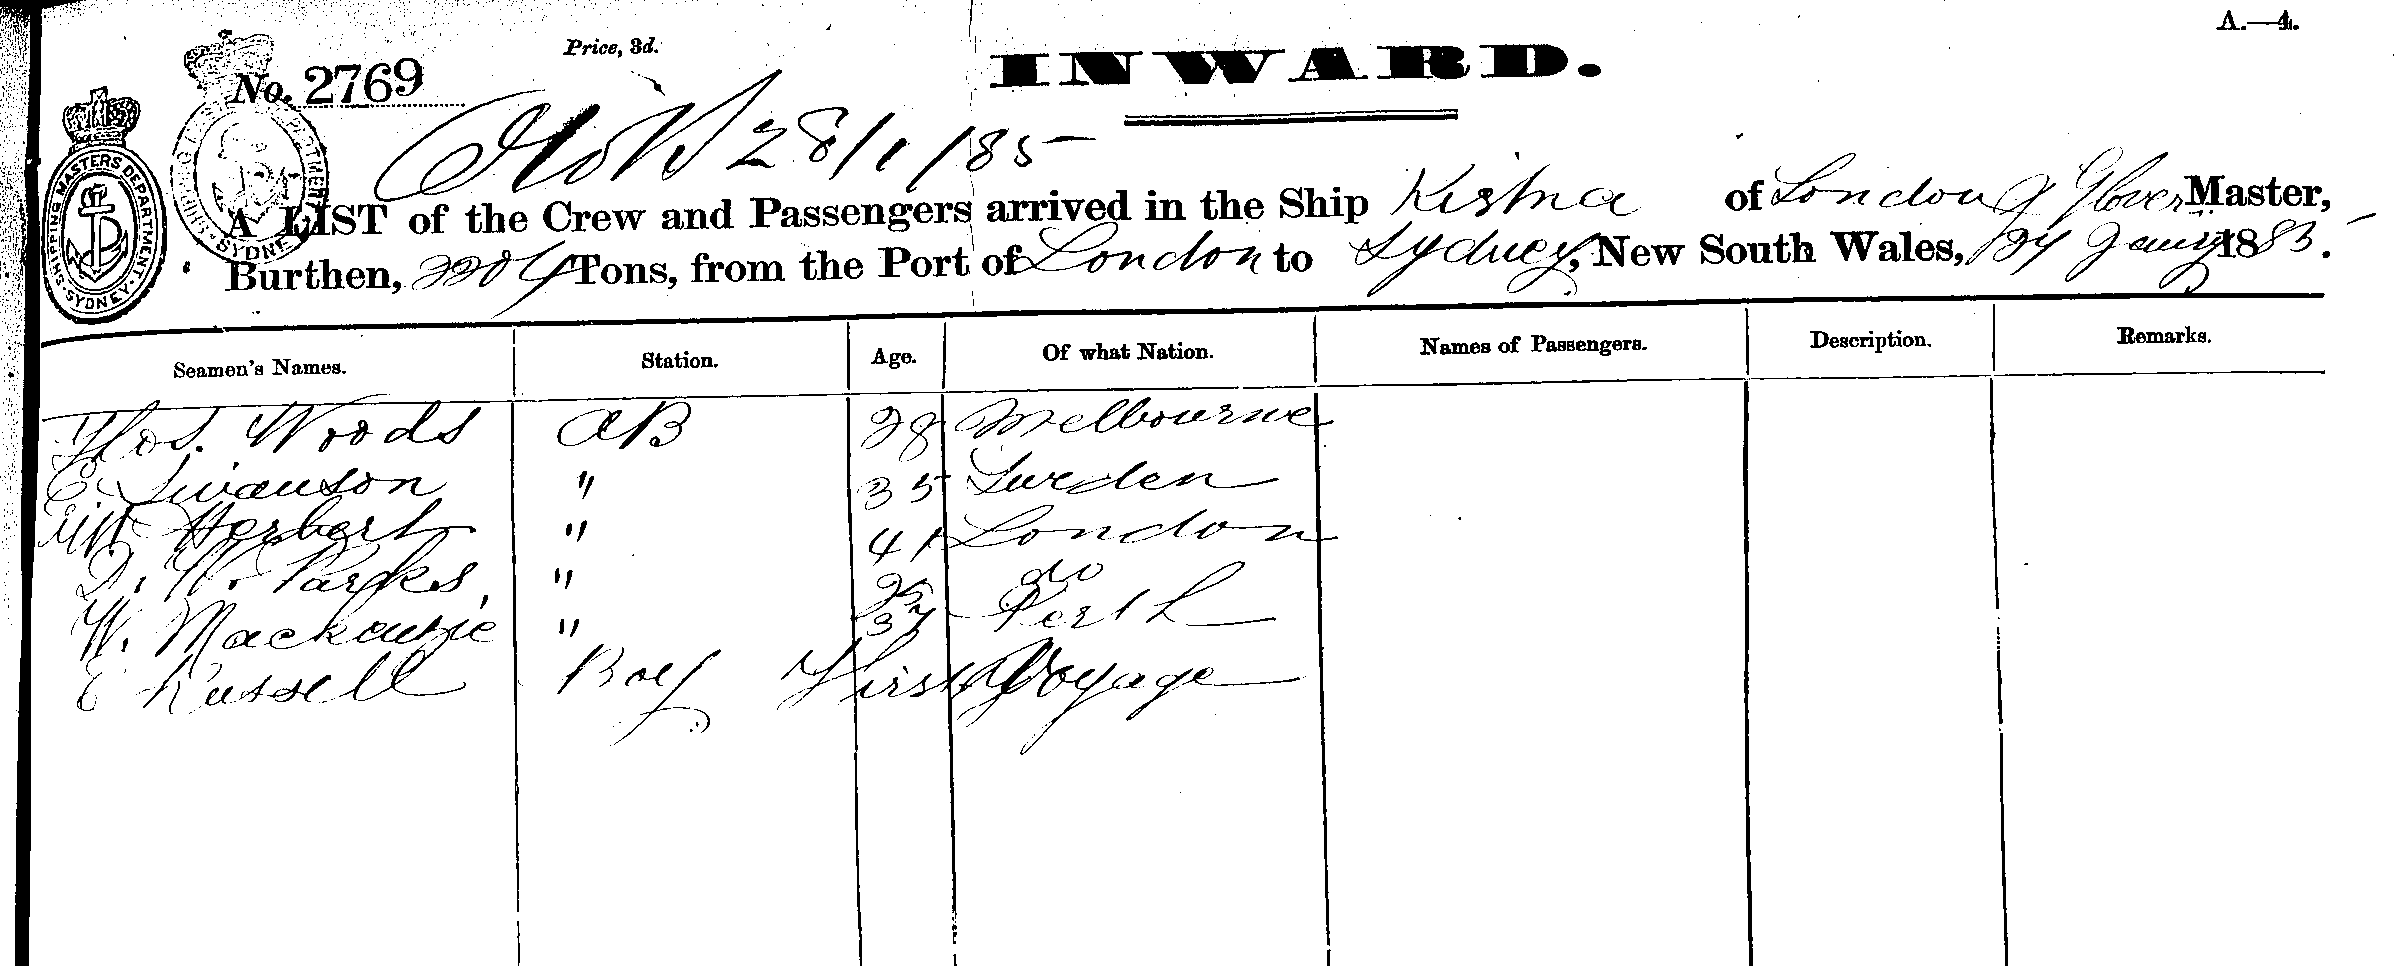 A.—4.
Price, 3d.
INWARD.
No. 2769
28/1/85
SHIPPING MASTERS DEPARTMENT · SYDNEY ·
A LIST of the Crew and Passengers arrived in the Ship Kistna of London J Glover Master,
Burthen, Tons, from the Port of London to Sydney, New South Wales, 1885.
Seamen's Names. Station. Age. Of what Nation. Names of Passengers. Description. Remarks.
Thos. Woods AB 28 Melbourne
C. Swanson " 35 Sweden
Wm Herbert " 41 London
W. Parkes, " 25 do
W. Mackenzie " 37 Perth
E Russell Boy First Voyage